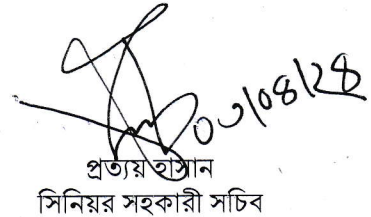 ০৩/০৪/২৪
প্রত্যয় হাসান
সিনিয়র সহকারী সচিব